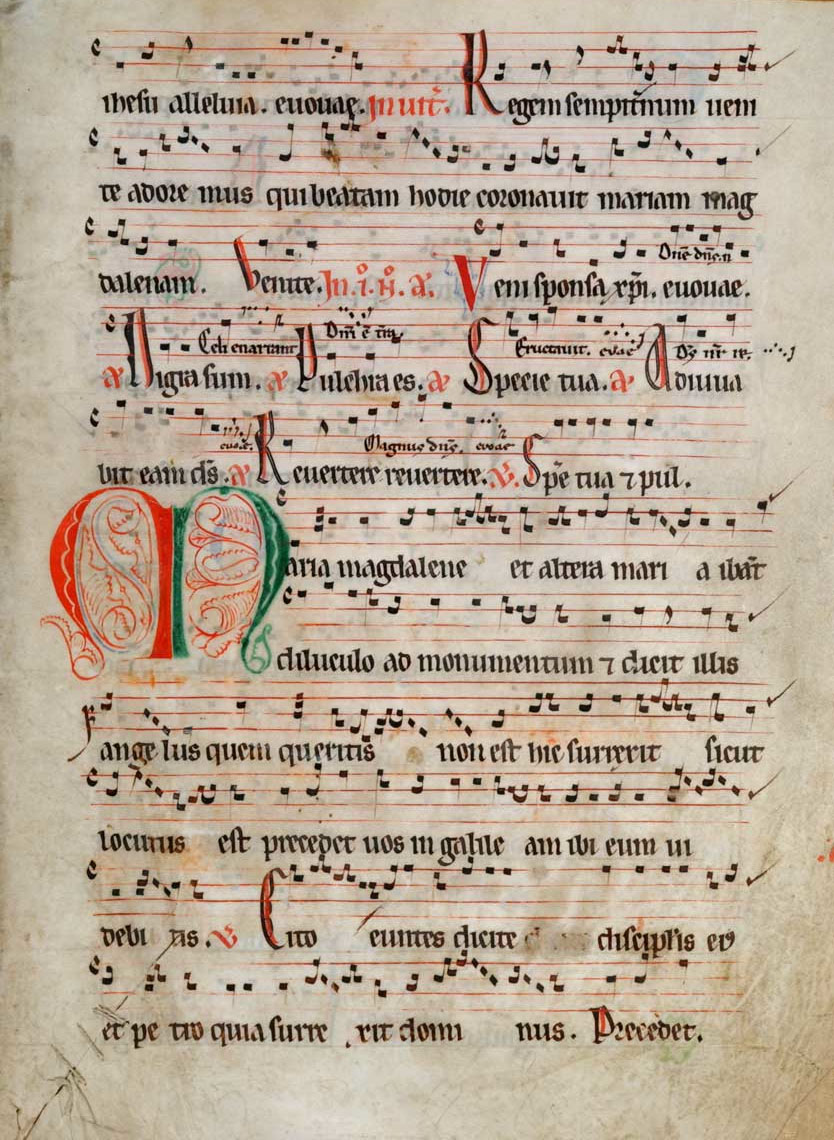 ihesu alleluia. euouae. Inuit. Regem sempitnum ueni
te adore mus qui beatam hodie coronauit mariam mag
dalenam. Venite. In .i. N. a. Veni sponsa xpi. euouae.
Dne dns. n
Celi enarrant Dni e tra Eructauit. euouae Ds nr re.
a Nigra sum. a Pulchra es. a Specie tua. a Adiuua
euouae. Magnus dns. euouae
bit eam ds. a Reuertere reuertere. V. Spe tua 7 pul.
Maria magdalene et altera mari a ibat
diluculo ad monumentum 7 dicit illis
ange lus quem queritis non est hic surrexit sicut
locutus est precedet uos in galile am ibi eum ui
debi tis. V Cito euntes dicite discipulis ei
et pe tro quia surre xit domi nus. Precedet.